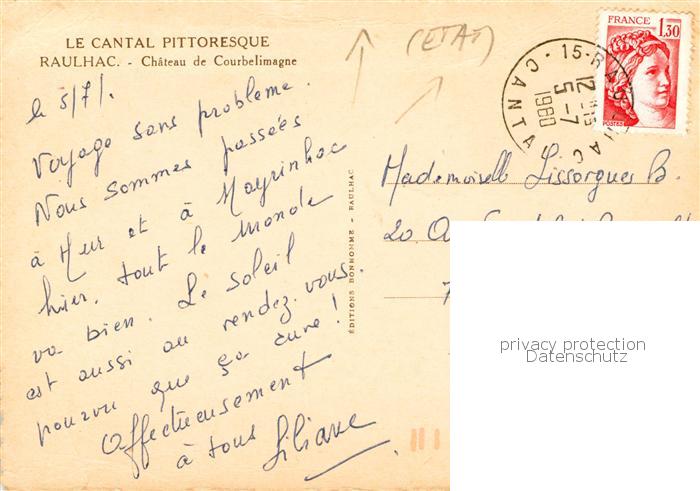 LE CANTAL PITTORESQUE
RAULHAC. - Château de Courbelimagne
le 5/7/.
Voyage sans problème.
Nous sommes passées
à Mur et à Mayrinhac
hier, tout le monde
va bien. Le soleil
est aussi au rendez-vous.
pourvu que ça dure !
Affectueusement
à tous Liliane
(ETAT)
ÉDITIONS BONHOMME - RAULHAC
15-RAULHAC
CANTAL
12 H15
5-7
1980
FRANCE
1,30
POSTES
Mademoiselle Lissorgues B.
20
privacy protection
Datenschutz